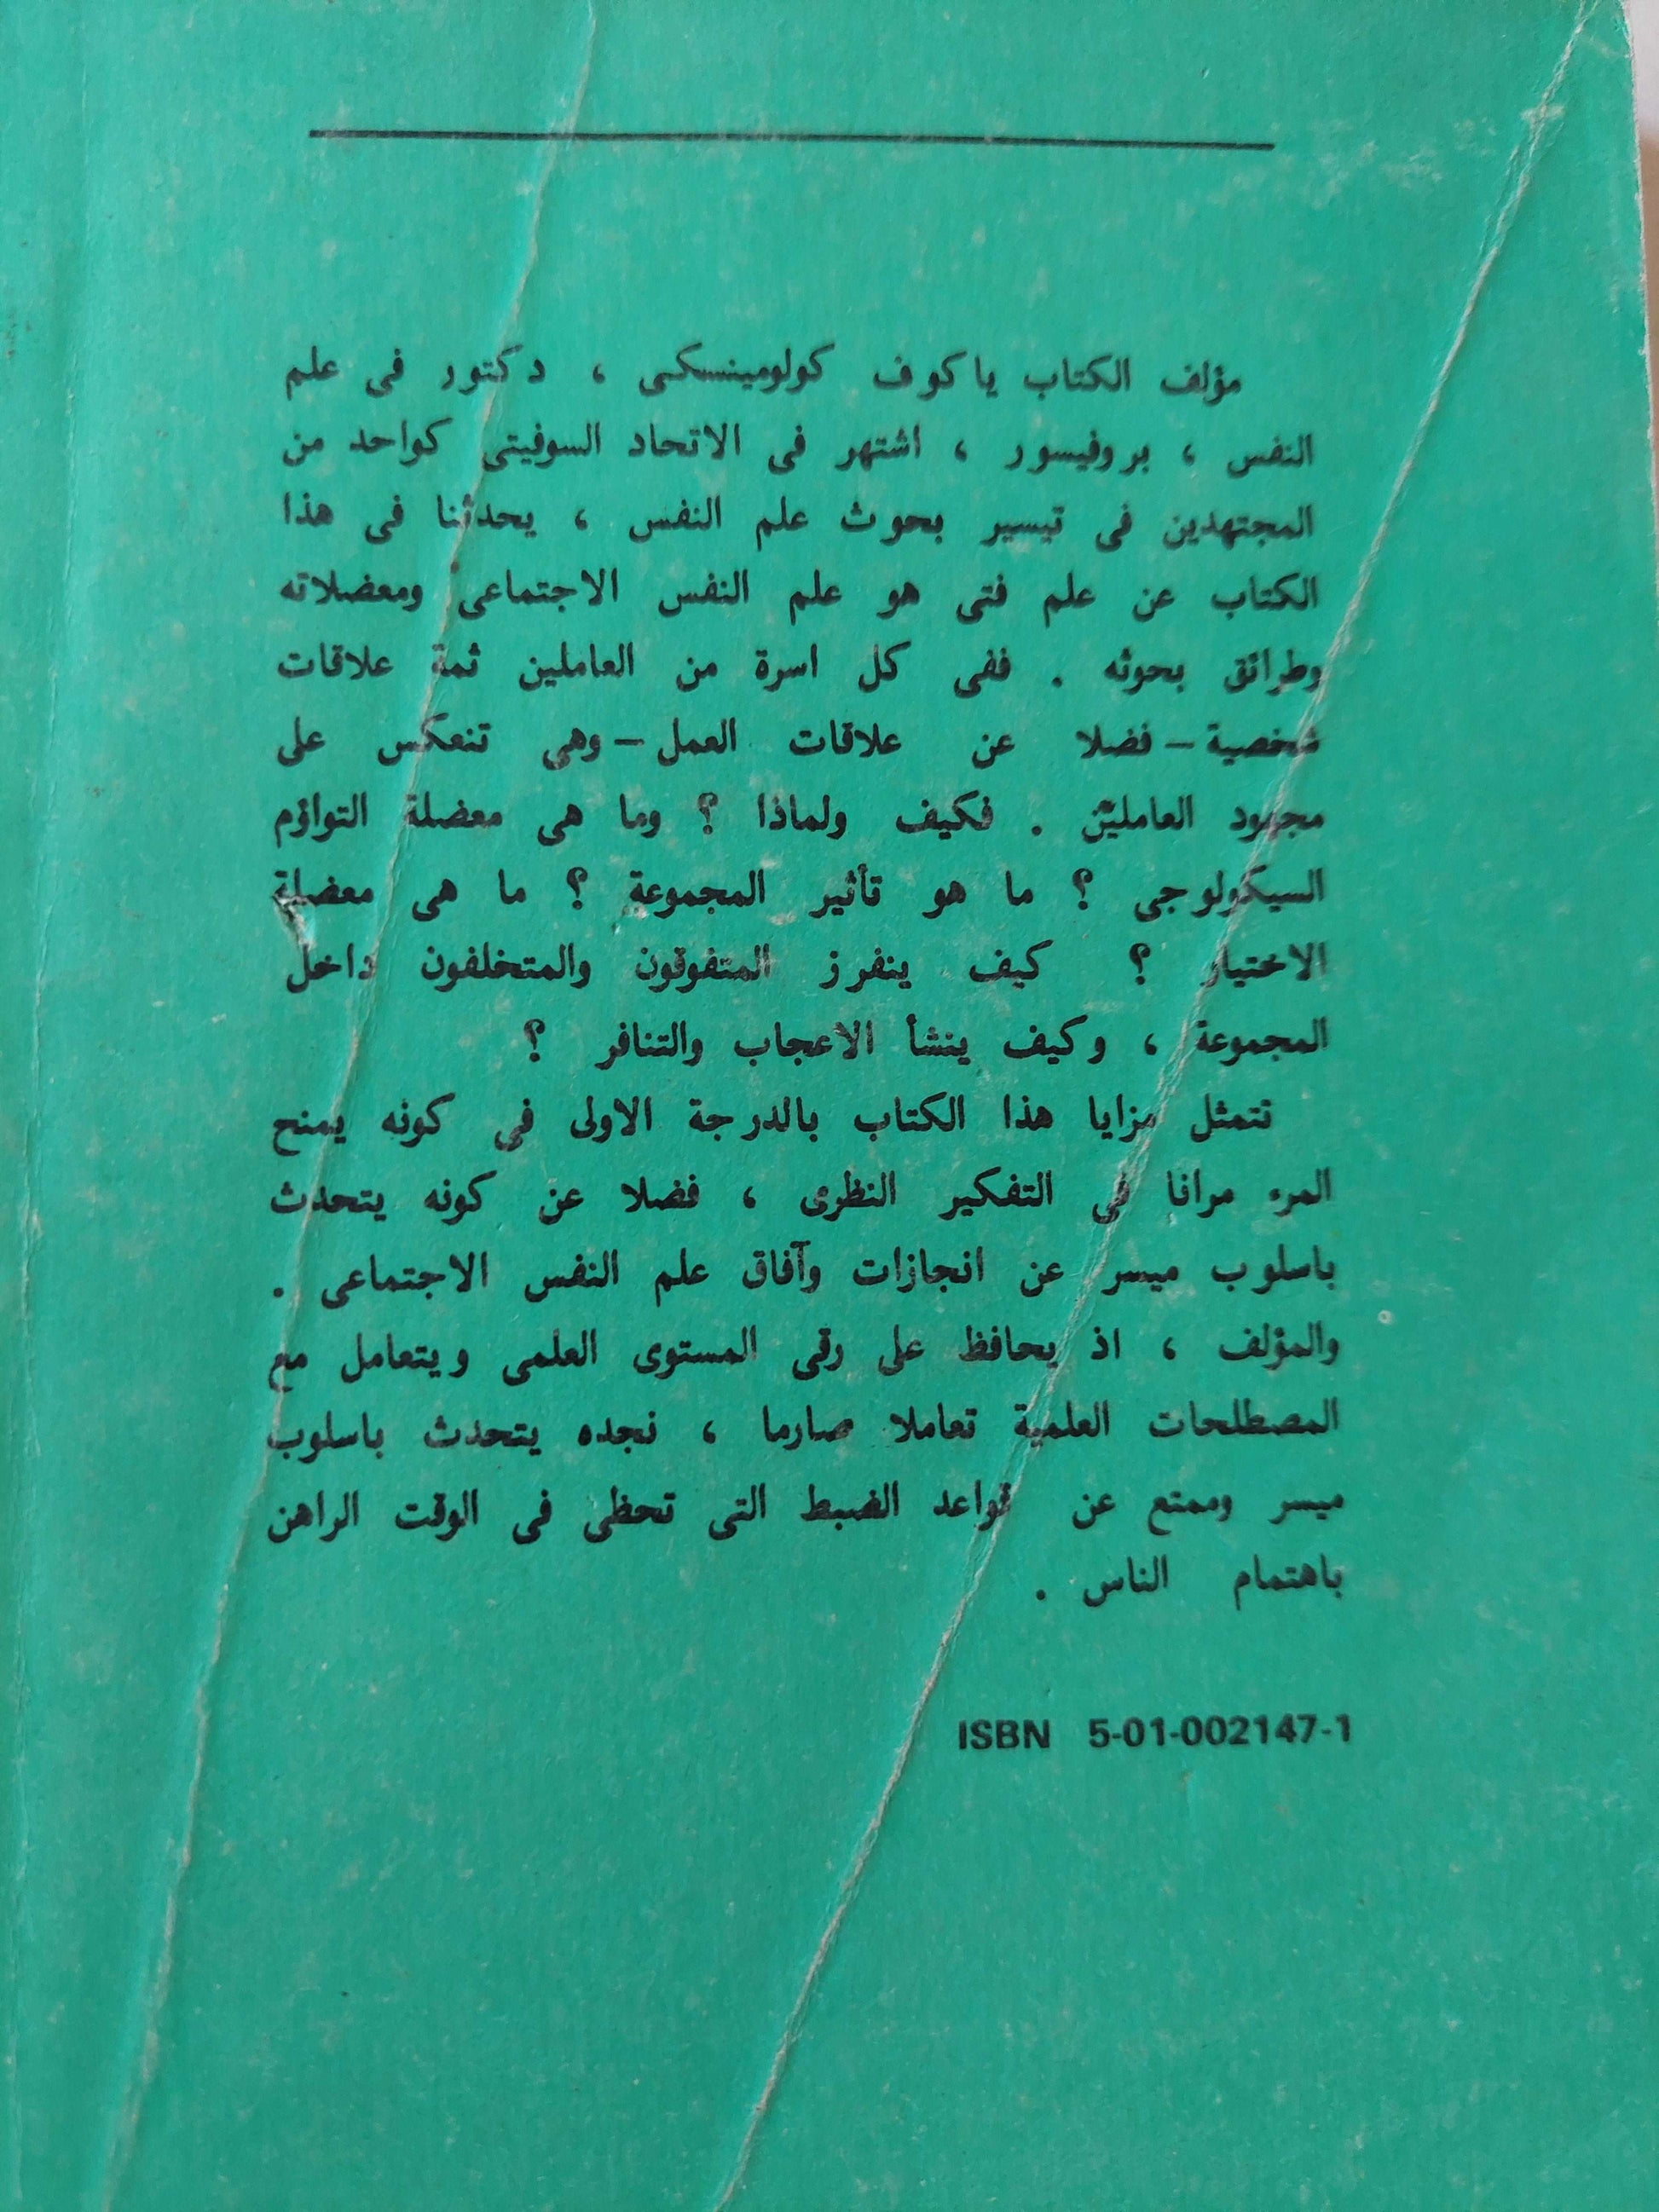 مؤلف الكتاب ياكوف كولومينسكى ، دكتور فى علم
النفس ، بروفيسور ، اشتهر فى الاتحاد السوفيتى كواحد من
المجتهدين فى تيسير بحوث علم النفس ، يحدثنا فى هذا
الكتاب عن علم فتى هو علم النفس الاجتماعى ومعضلاته
وطرائق بحوثه . ففى كل اسرة من العاملين ثمة علاقات
شخصية – فضلا عن علاقات العمل – وهى تنعكس على
مجهود العاملين . فكيف ولماذا ؟ وما هى معضلة التواؤم
السيكولوجى ؟ ما هو تأثير المجموعة ؟ ما هى معضلة
الاختيار ؟ كيف ينفرز المتفوقون والمتخلفون داخل
المجموعة ، وكيف ينشأ الاعجاب والتنافر ؟
تتمثل مزايا هذا الكتاب بالدرجة الاولى فى كونه يمنح
المرء مرانا فى التفكير النظرى ، فضلا عن كونه يتحدث
باسلوب ميسر عن انجازات وآفاق علم النفس الاجتماعى .
والمؤلف ، اذ يحافظ على رقى المستوى العلمى ويتعامل مع
المصطلحات العلمية تعاملا صارما ، نجده يتحدث باسلوب
ميسر وممتع عن قواعد الضبط التى تحظى فى الوقت الراهن
باهتمام الناس .
ISBN 5-01-002147-1